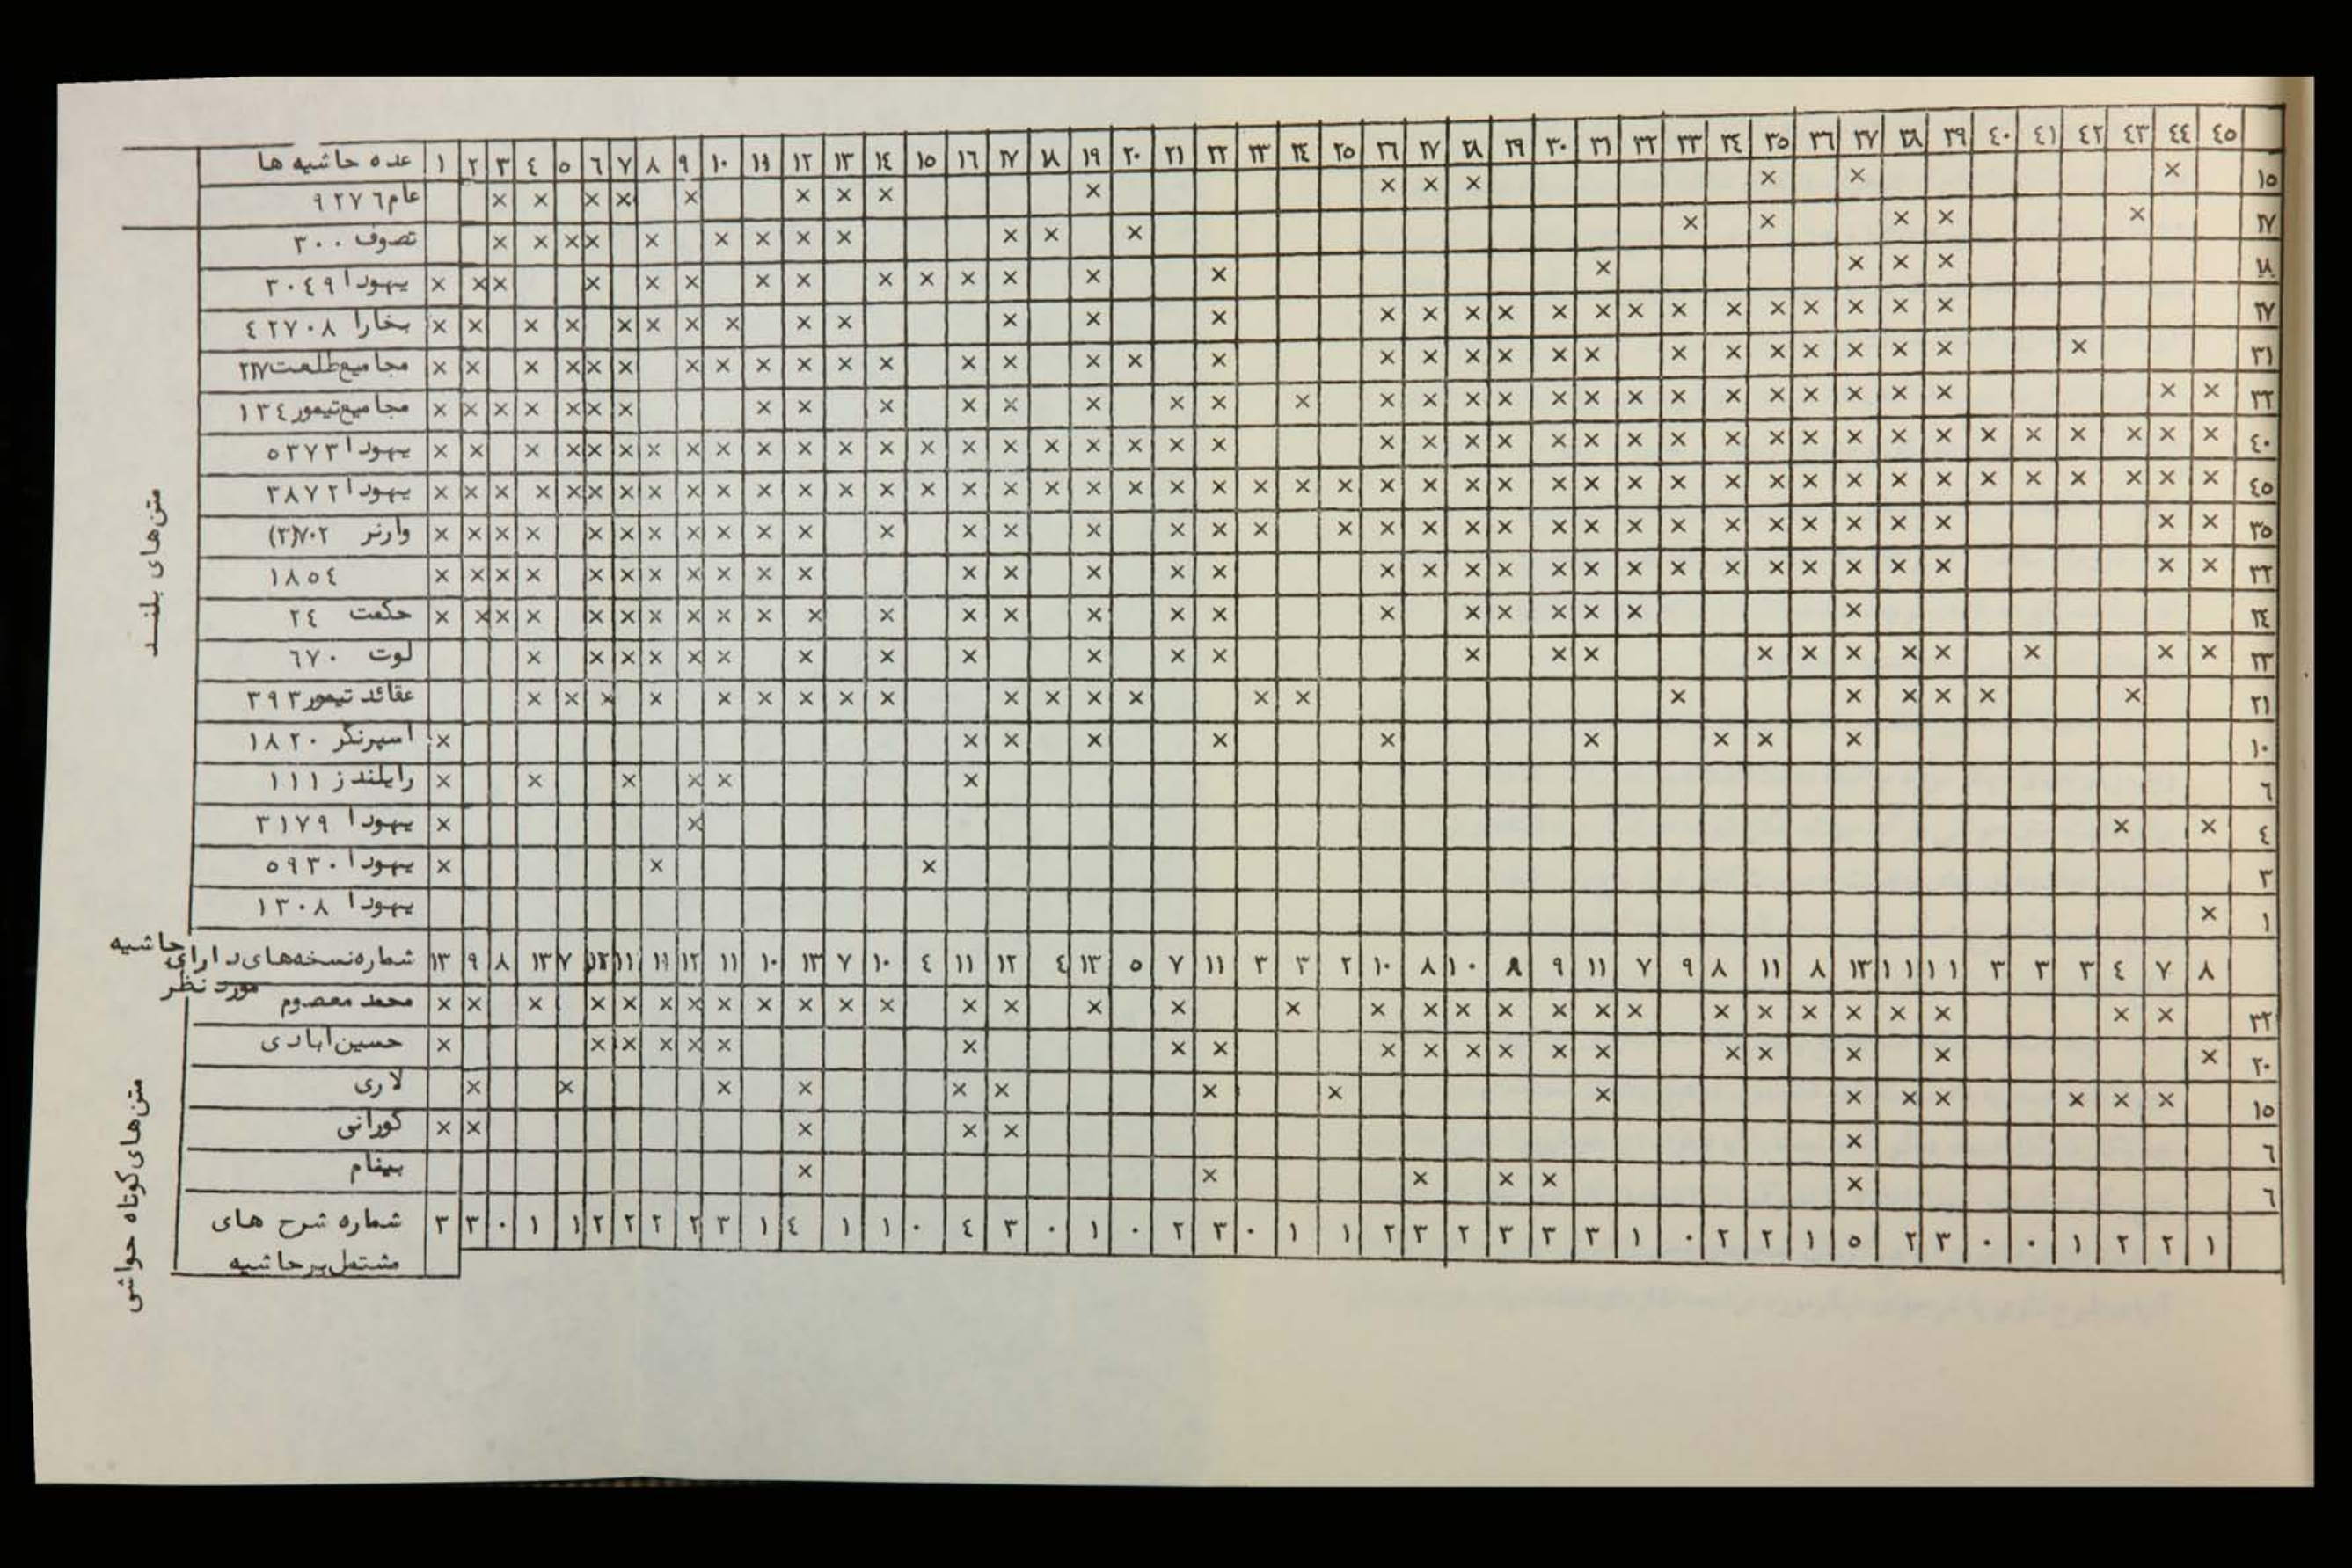 عده حاشیه ها ١ ٢ ٣ ٤ ٥ ٦ ٧ ٨ ٩ ١٠ ١١ ١٢ ١٣ ١٤ ١٥ ١٦ ١٧ ١٨ ١٩ ٢٠ ٢١ ٢٢ ٢٣ ٢٤ ٢٥ ٢٦ ٢٧ ٢٨ ٢٩ ٣٠ ٣١ ٣٢ ٣٣ ٣٤ ٣٥ ٣٦ ٣٧ ٣٨ ٣٩ ٤٠ ٤١ ٤٢ ٤٣ ٤٤ ٤٥
عام ٩٢٧٦ ١٥
تصوف ٣٠٠ ١٧
یهودا ٣٠٤٩ ١٨
بخارا ٤٢٧٠٨ ٢٧
مجامیع طلعت ٢١٧ ٣١
مجامیع تیمور ١٣٤ ٣٢
یهودا ٥٣٧٣ ٤٠
یهودا ٣٨٧٢ ٤٥
وارنر ٧٠٢(٣) ٣٥
١٨٥٤ ٣٢
حکمت ٢٤ ٢٤
لوت ٦٧٠ ٢٣
عقائد تیمور ٣٩٣ ٢١
اسپرنگر ١٨٢٠ ١٠
رایلندز ١١١ ٦
یهودا ٣١٧٩ ٤
یهودا ٥٩٣٠ ٣
یهودا ١٣٠٨ ١
متن‌های بلند
شماره نسخه‌های دارای حاشیه مورد نظر ١٣ ٩ ٨ ١٣ ٧ ١٢ ١١ ١١ ١٢ ١١ ١٠ ١٣ ٧ ١٠ ٤ ١١ ١٢ ٤ ١٣ ٥ ٧ ١١ ٣ ٣ ٢ ١٠ ٨ ١٠ ٨ ٩ ١١ ٧ ٩ ٨ ١١ ٨ ١٣ ١١ ١١ ٣ ٣ ٣ ٤ ٧ ٨
محمد معصوم ٣٢
حسین‌ابادی ٢٠
لاری ١٥
کورانی ٦
بینام ٦
شماره شرح های ٣ ٣ ٠ ١ ١ ٢ ٢ ٢ ٢ ٣ ١ ٤ ١ ١ ٠ ٤ ٣ ٠ ١ ٠ ٢ ٣ ٠ ١ ١ ٢ ٣ ٢ ٣ ٣ ٣ ١ ٠ ٢ ٢ ١ ٥ ٢ ٣ ٠ ٠ ١ ٢ ٢ ١
مشتمل بر حاشیه
متن‌های کوتاه حواشی